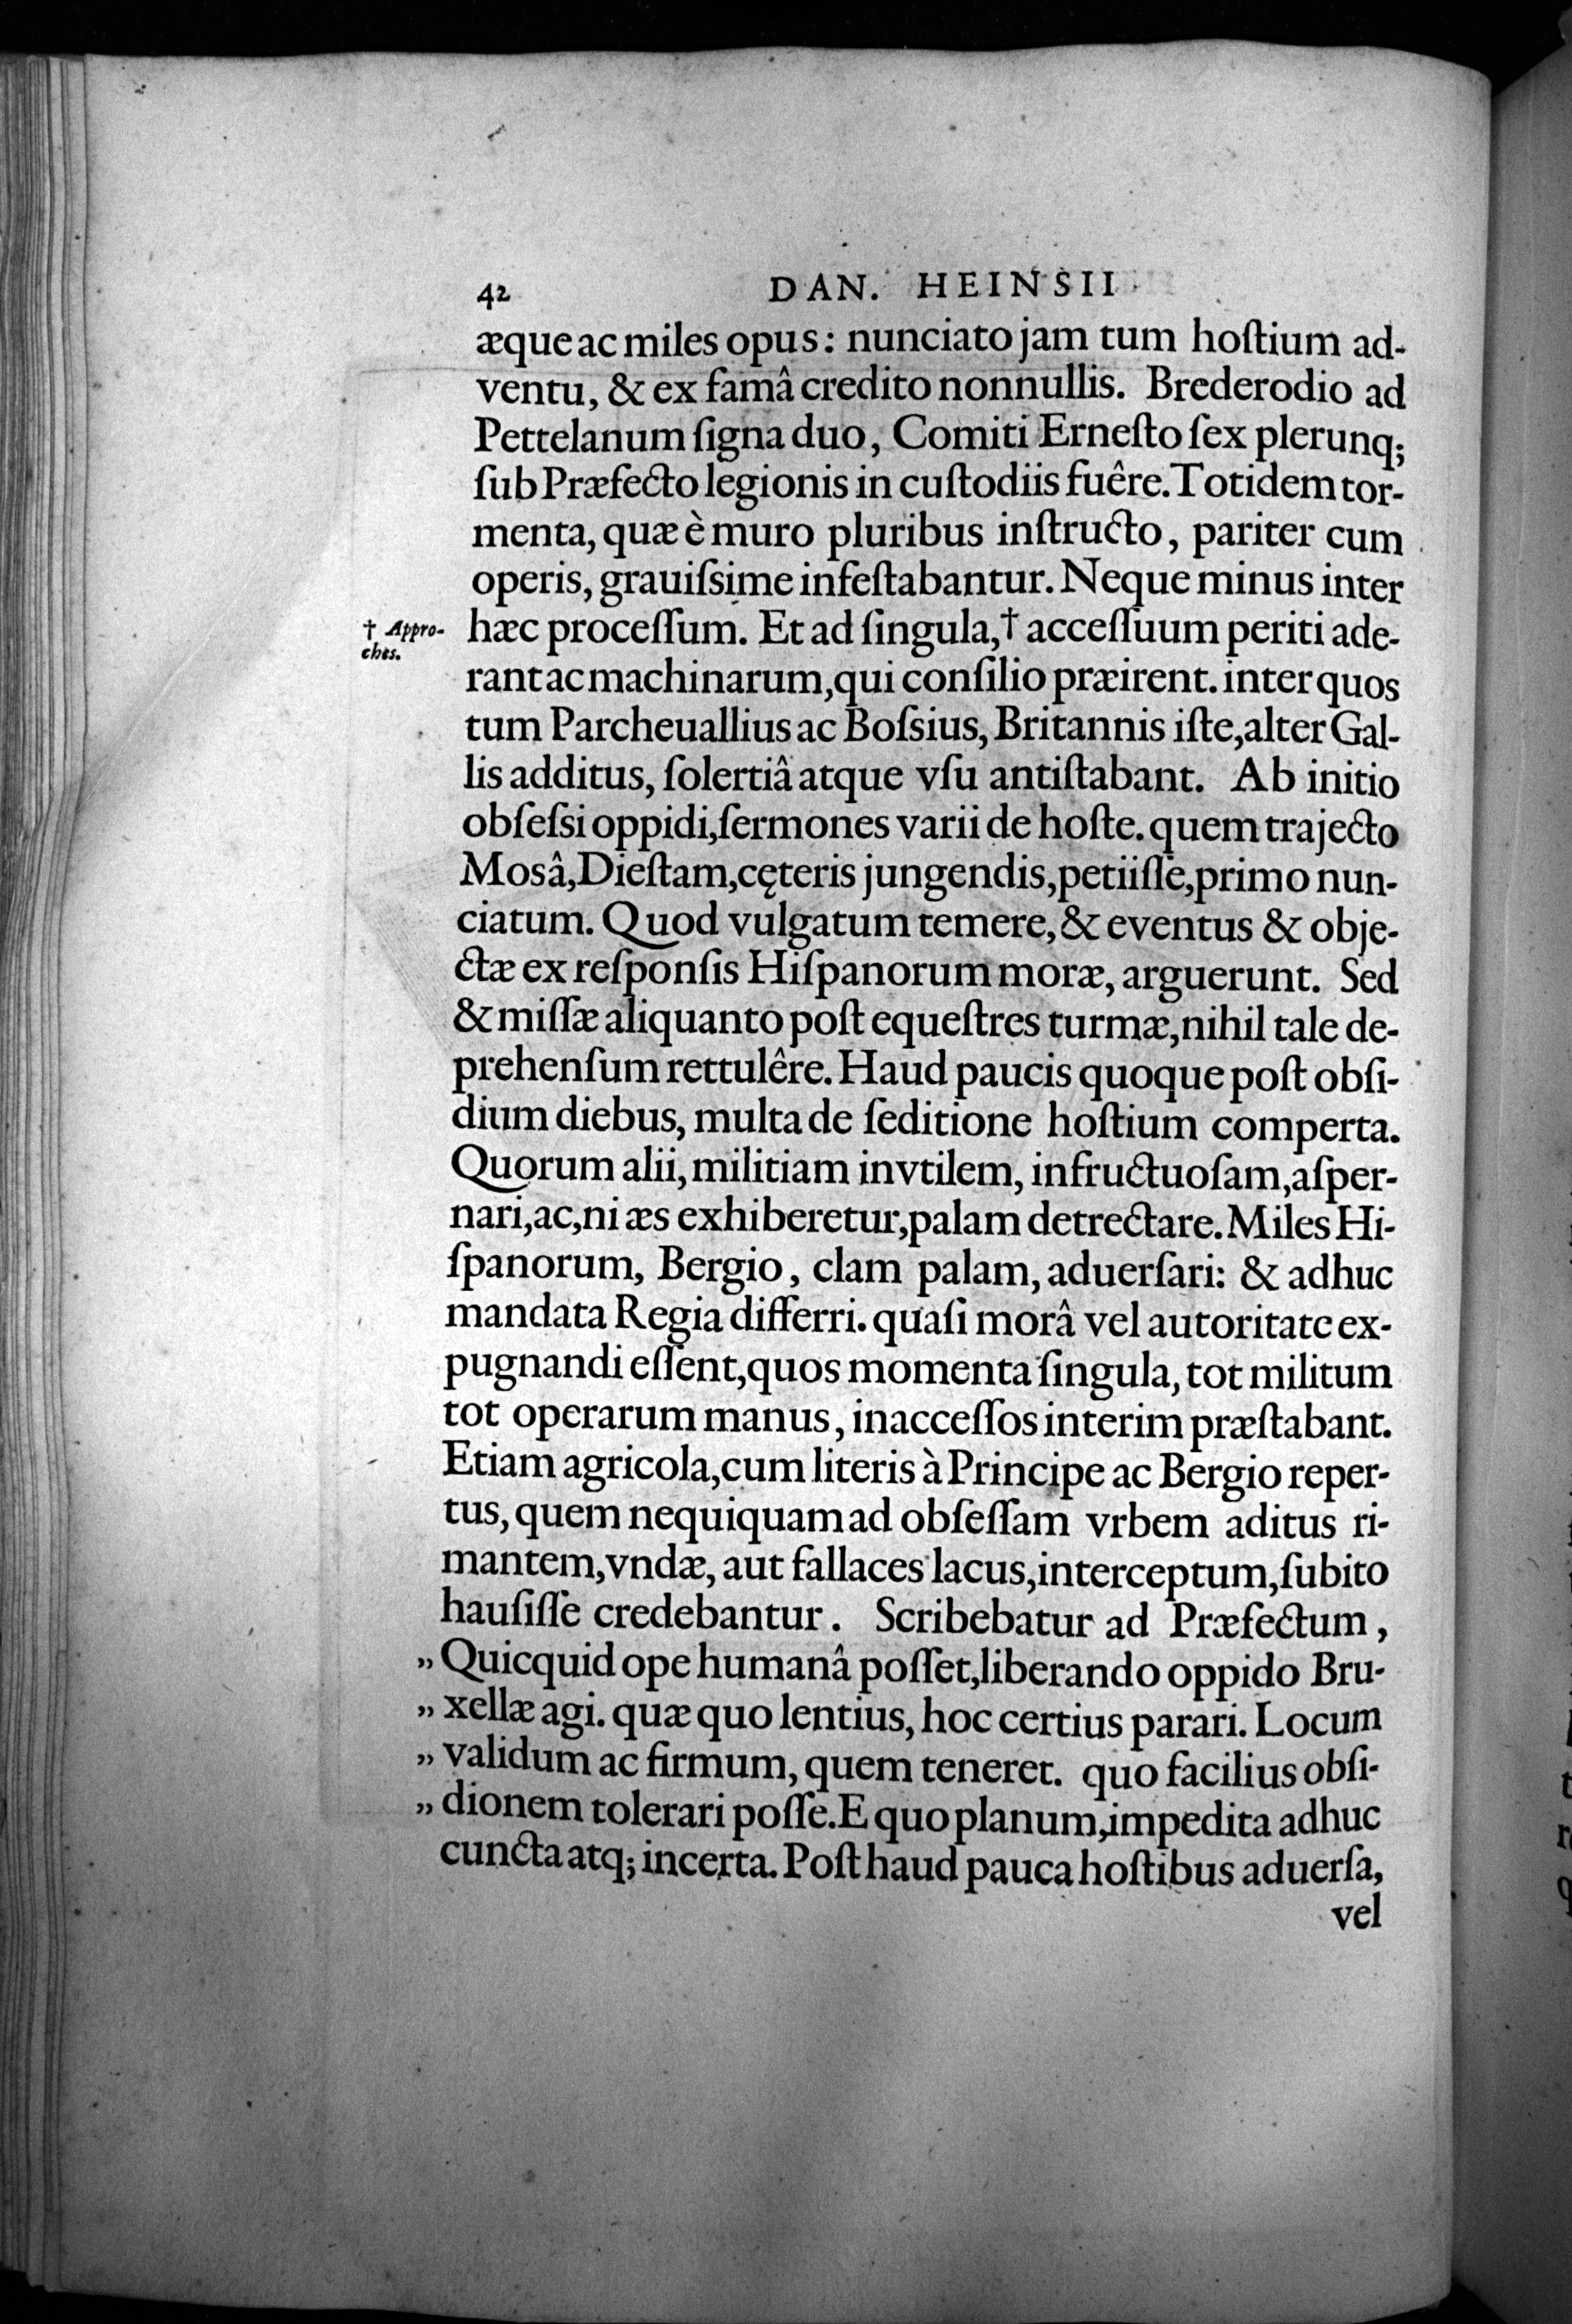 42 DAN. HEINSII
æque ac miles opus: nunciato jam tum hoſtium ad-
ventu, & ex famâ credito nonnullis. Brederodio ad
Pettelanum ſigna duo, Comiti Erneſto ſex plerunq;
ſub Præfecto legionis in cuſtodiis fuêre. Totidem tor-
menta, quæ è muro pluribus inſtructo, pariter cum
operis, grauiſsime infeſtabantur. Neque minus inter
† Appro-
ches.
hæc proceſſum. Et ad ſingula, † acceſſuum periti ade-
rant ac machinarum, qui conſilio præirent. inter quos
tum Parcheuallius ac Boſsius, Britannis iſte, alter Gal-
lis additus, ſolertiâ atque vſu antiſtabant. Ab initio
obſeſsi oppidi, ſermones varii de hoſte. quem trajecto
Mosâ, Dieſtam, cęteris jungendis, petiiſſe, primo nun-
ciatum. Quod vulgatum temere, & eventus & obje-
ctæ ex reſponſis Hiſpanorum moræ, arguerunt. Sed
& miſſæ aliquanto poſt equeſtres turmæ, nihil tale de-
prehenſum rettulêre. Haud paucis quoque poſt obſi-
dium diebus, multa de ſeditione hoſtium comperta.
Quorum alii, militiam invtilem, infructuoſam, aſper-
nari, ac, ni æs exhiberetur, palam detrectare. Miles Hi-
ſpanorum, Bergio, clam palam, aduerſari: & adhuc
mandata Regia differri. quaſi morâ vel autoritate ex-
pugnandi eſſent, quos momenta ſingula, tot militum
tot operarum manus, inacceſſos interim præſtabant.
Etiam agricola, cum literis à Principe ac Bergio reper-
tus, quem nequiquam ad obſeſſam vrbem aditus ri-
mantem, vndæ, aut fallaces lacus, interceptum, ſubito
hauſiſſe credebantur. Scribebatur ad Præfectum,
„ Quicquid ope humanâ poſſet, liberando oppido Bru-
„ xellæ agi. quæ quo lentius, hoc certius parari. Locum
„ validum ac firmum, quem teneret. quo facilius obſi-
„ dionem tolerari poſſe. E quo planum, impedita adhuc
cuncta atq; incerta. Poſt haud pauca hoſtibus aduerſa,
vel